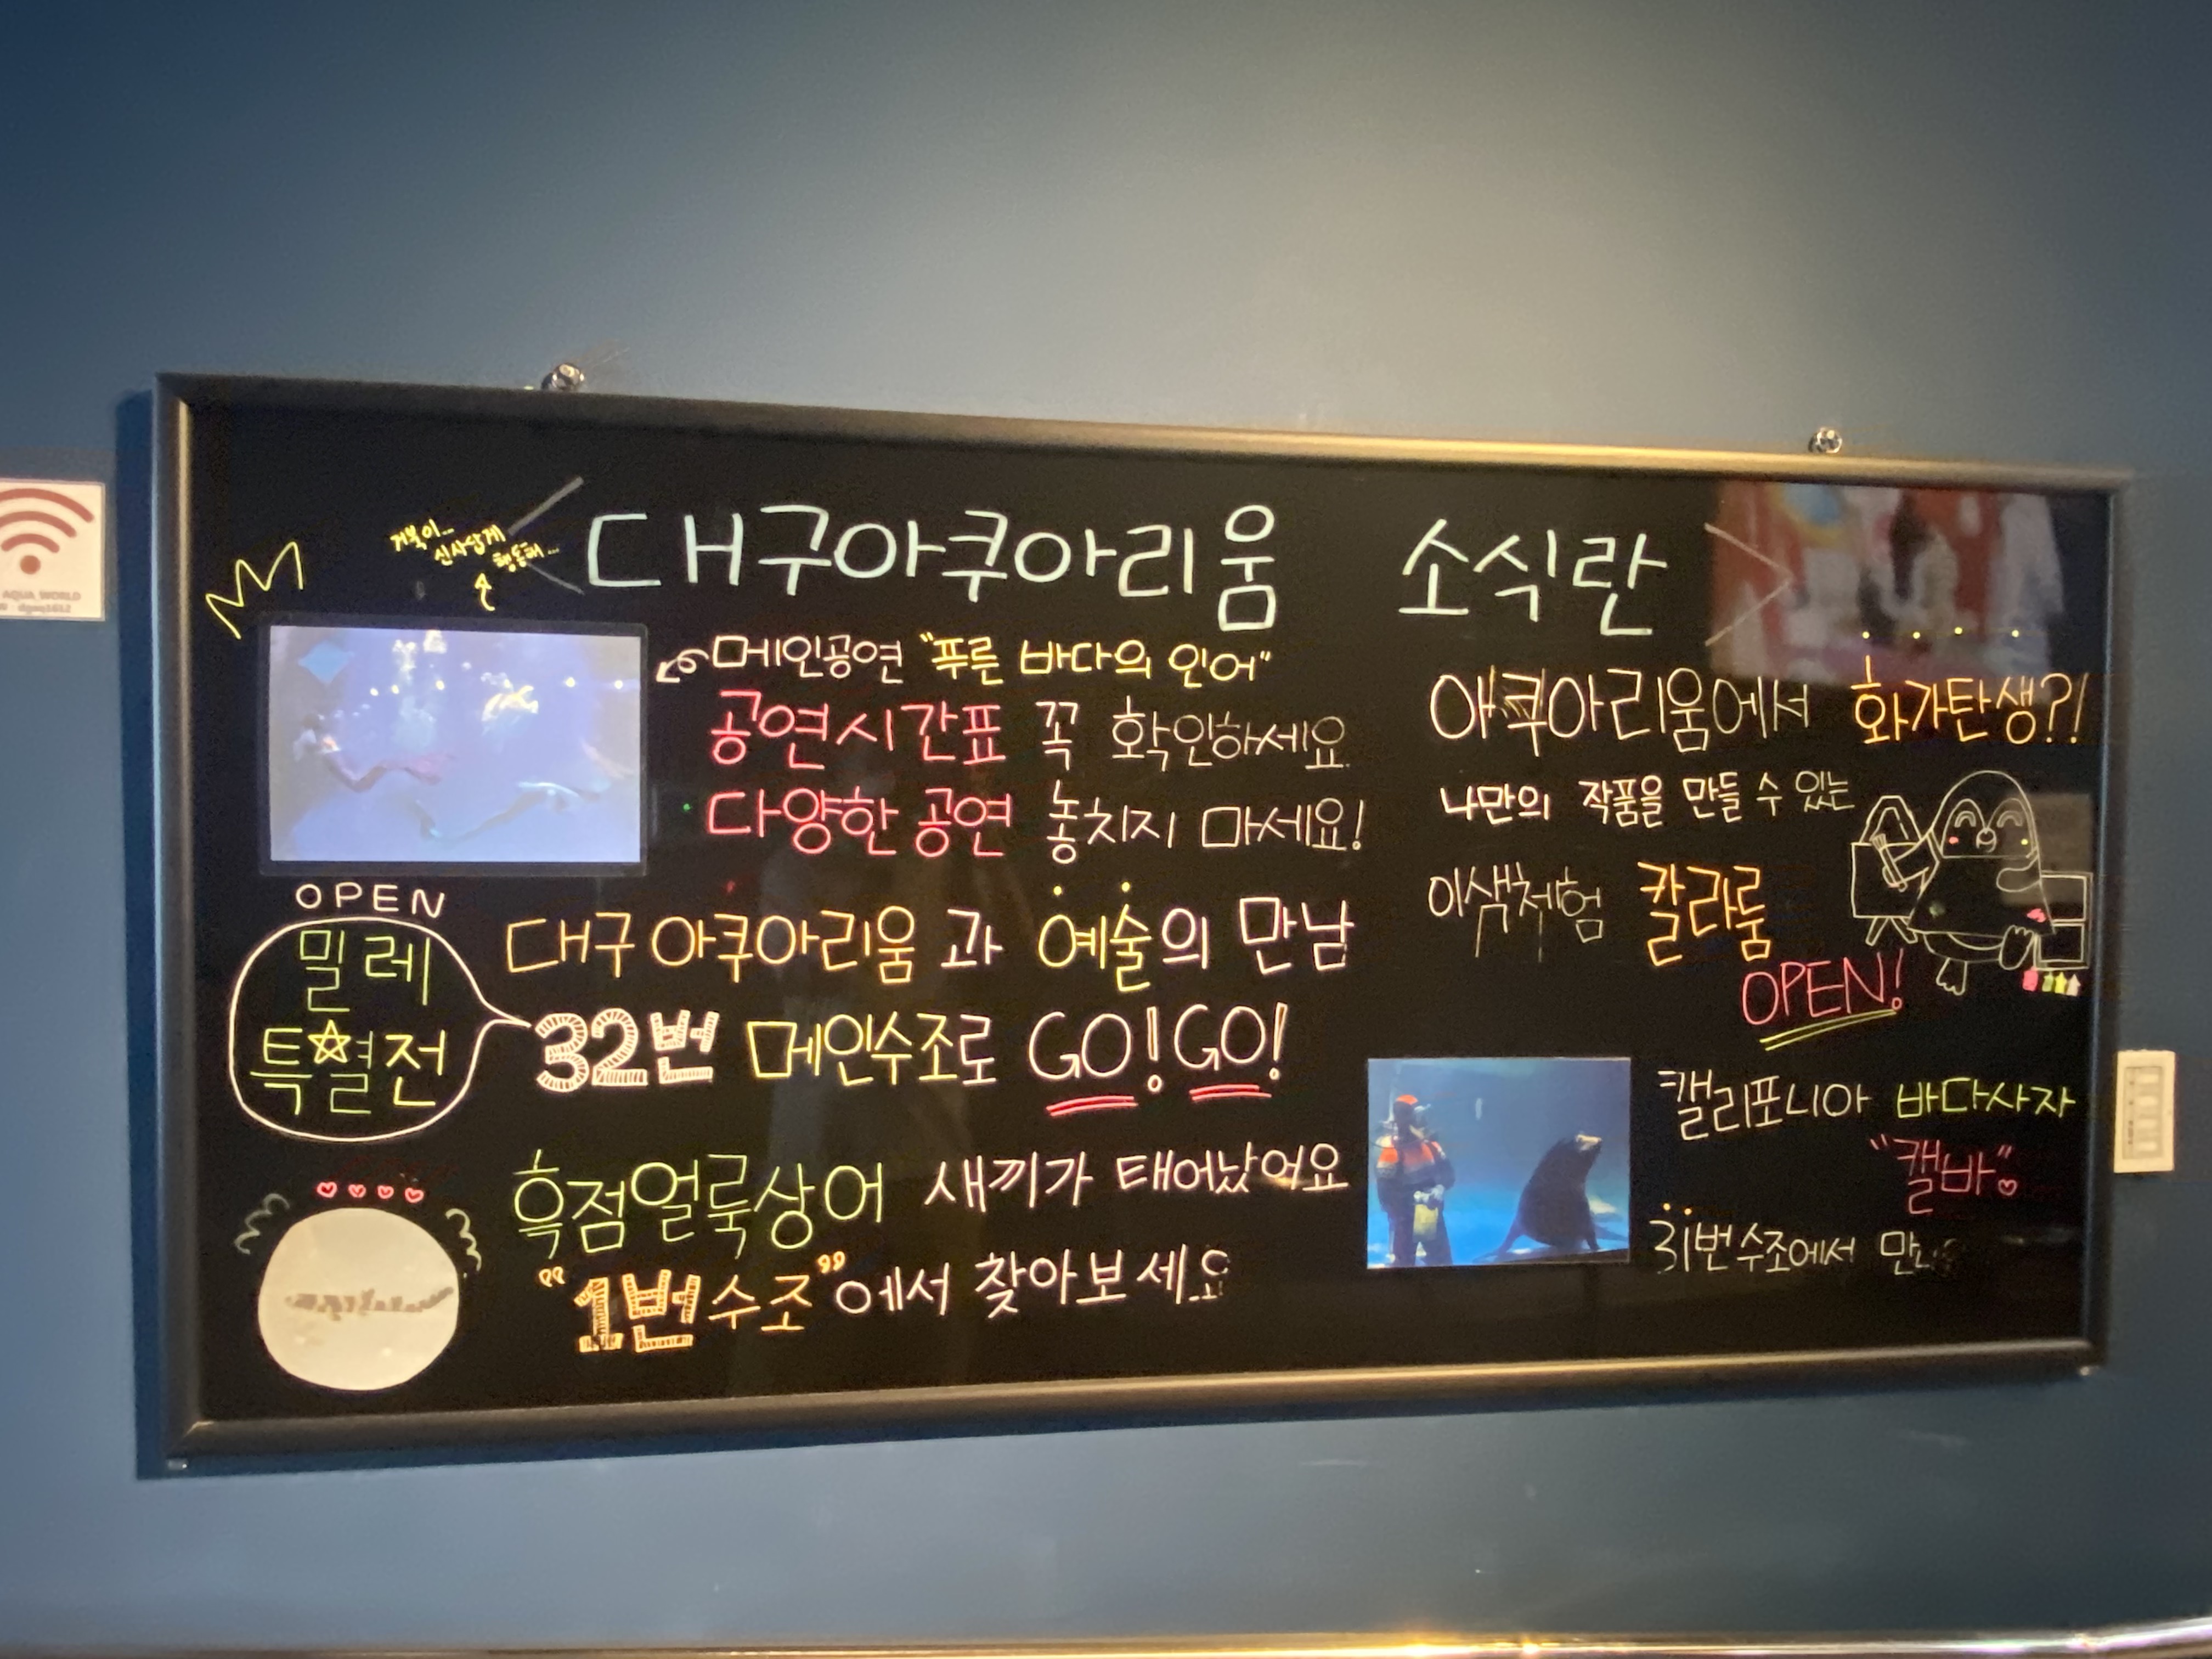 거북이...
신사답게
행동해...
대구아쿠아리움 소식란
메인공연 "푸른 바다의 인어"
공연시간표 꼭 확인하세요.
다양한 공연 놓치지 마세요!
OPEN
밀레
특별전
대구 아쿠아리움 과 예술의 만남
32번 메인수조로 GO! GO!
흑점얼룩상어 새끼가 태어났어요
"1번수조"에서 찾아보세요
아쿠아리움에서 화가탄생?!
나만의 작품을 만들 수 있는
이색체험 칼라룸
OPEN!
캘리포니아 바다사자
"캘바"
31번수조에서
AQUA WORLD